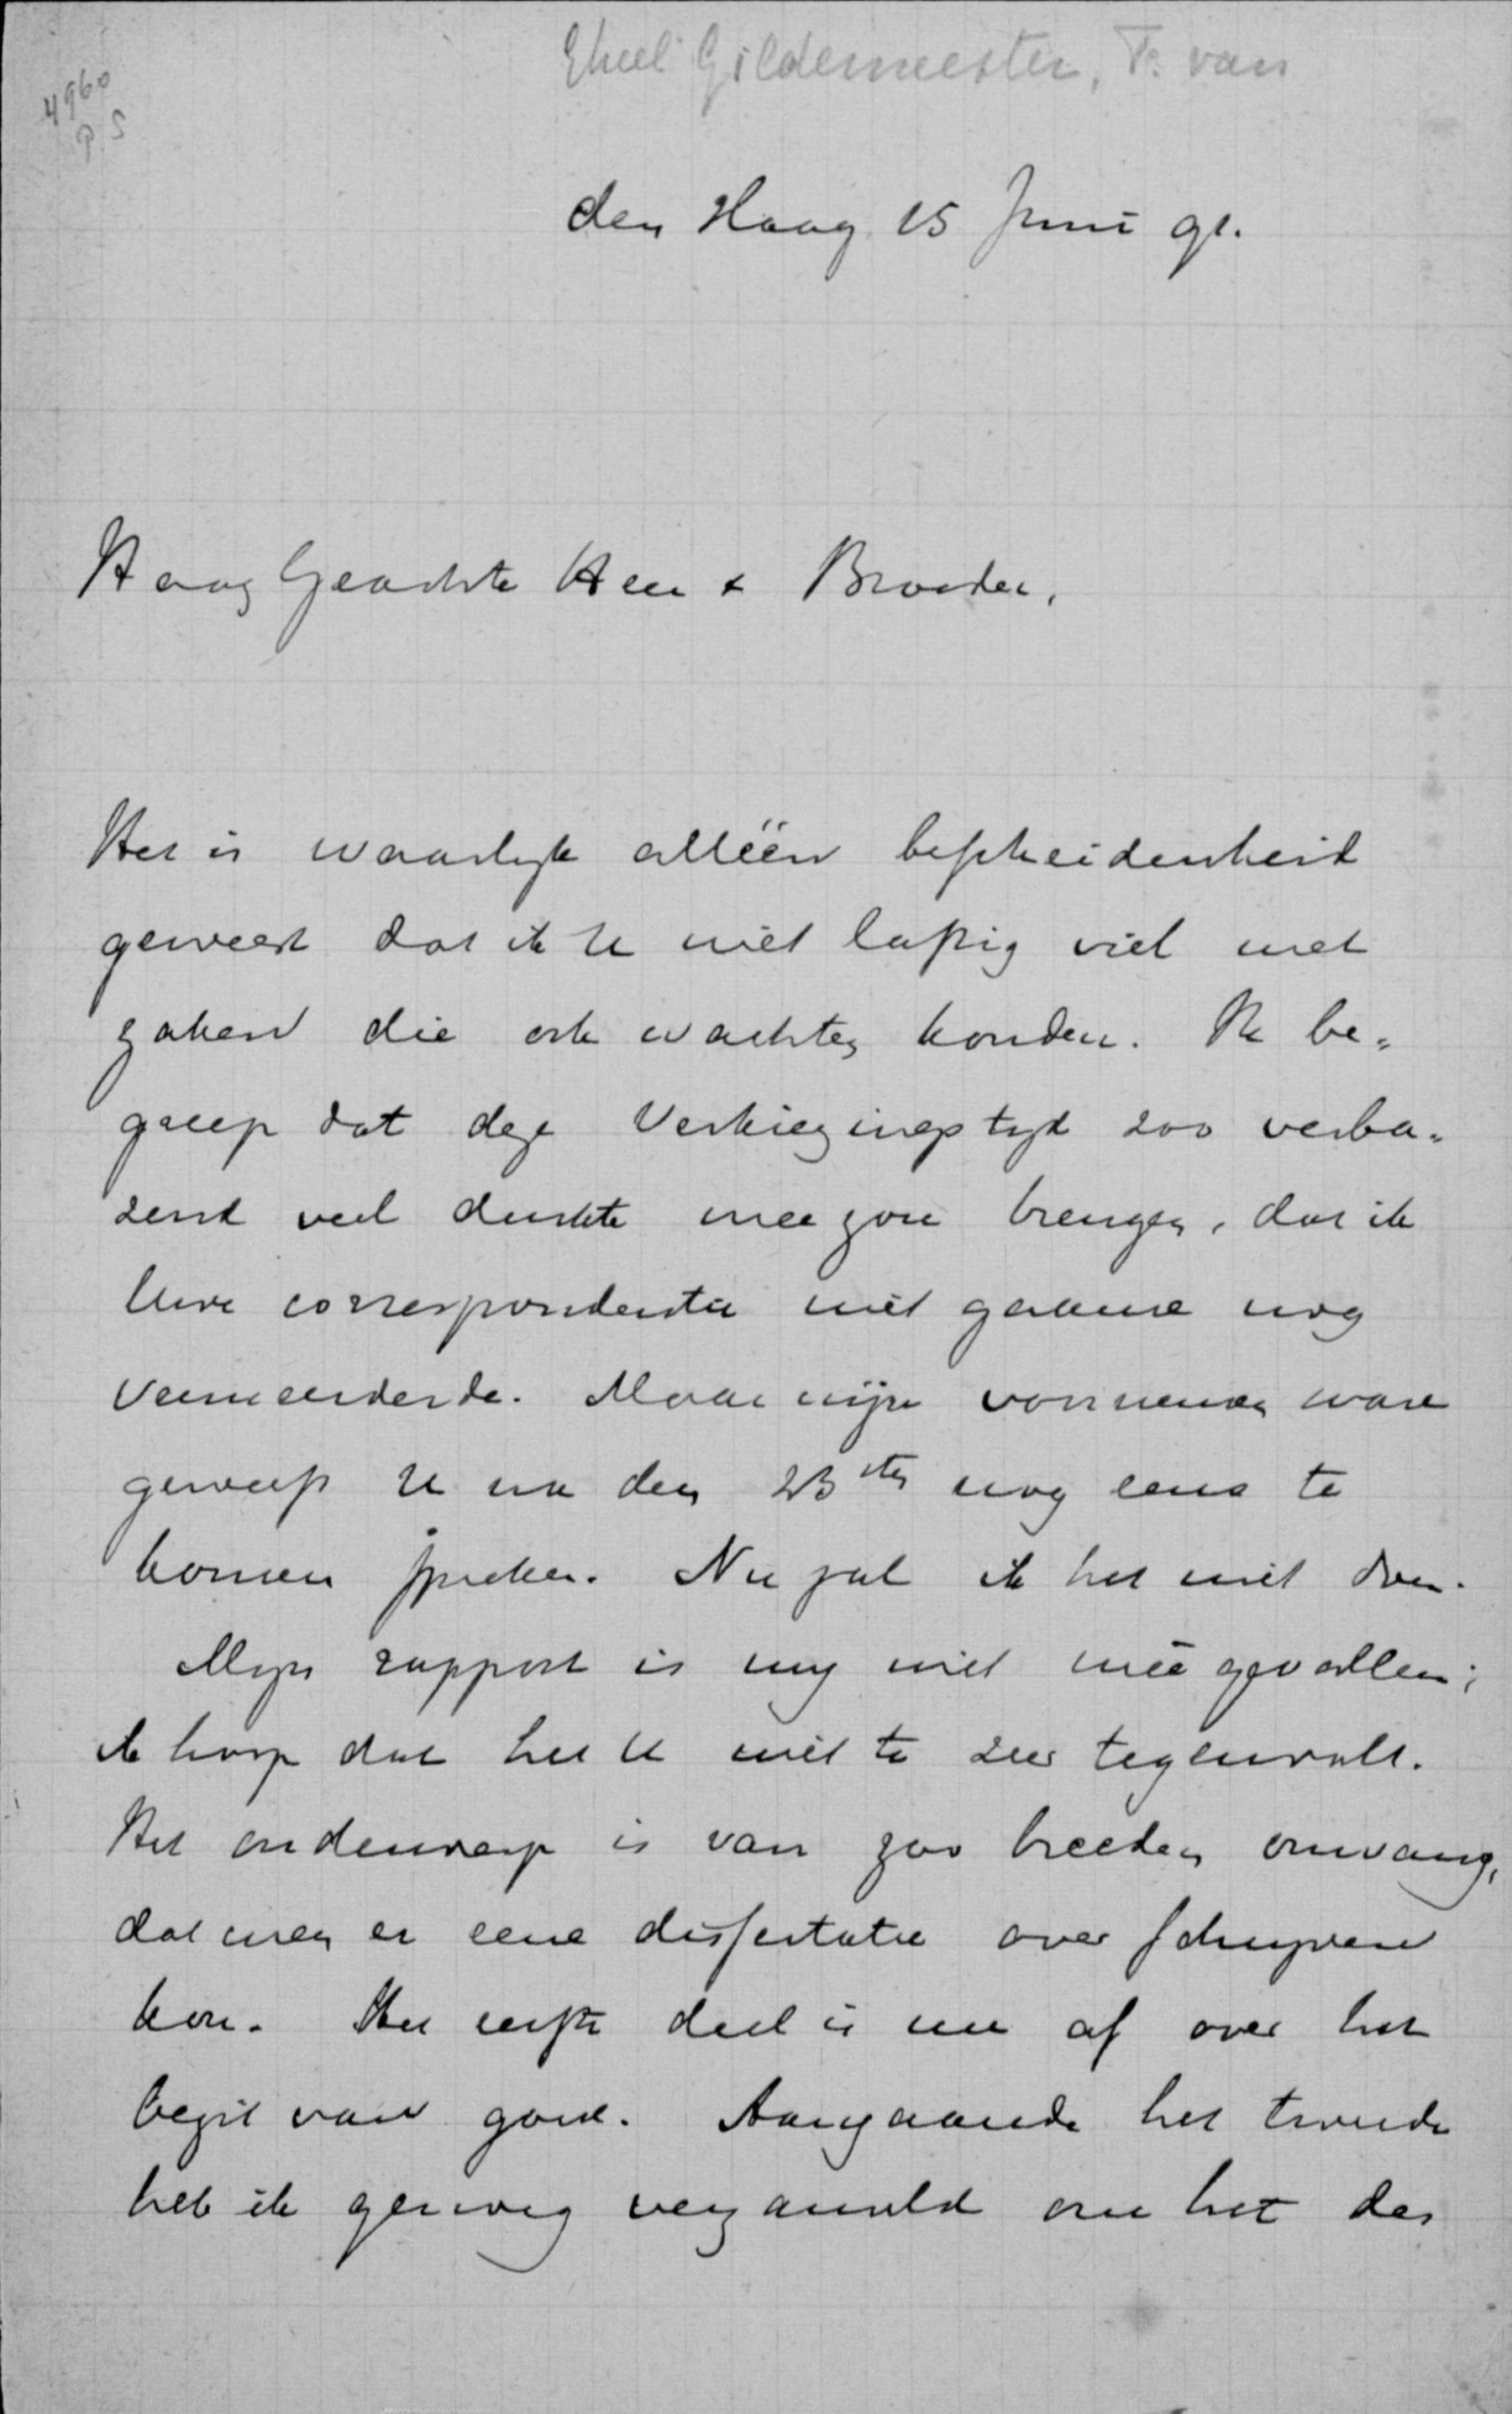 Gheel Gildemeester, F. van
4960
PS
den Haag 15 Juni 91.
Hoog Geachte Heer & Broeder,
Het is waarlijk alléén bescheidenheid
geweest dat ik U niet lastig viel met
zaken die ook wachten konden. Ik be-
greep dat deze Verkiezingstijd zoo verba-
zend veel drukte mee zou brengen, dat ik
Uwe correspondentie niet gaarne nog
vermeerderde. Maar mijn voornemen was
geweest U na den 23sten nog eens te
komen spreken. Nu zal ik het niet doen.
Mijn rapport is mij niet meê gevallen;
ik hoop dat het U niet te zeer tegenvalt.
Het onderwerp is van zoo breeden omvang,
dat men er eene dissertatie over schrijven
kon. Het eerste deel is nu af over het
bezit van goed. Aangaande het tweede
heb ik genoeg verzameld om het des